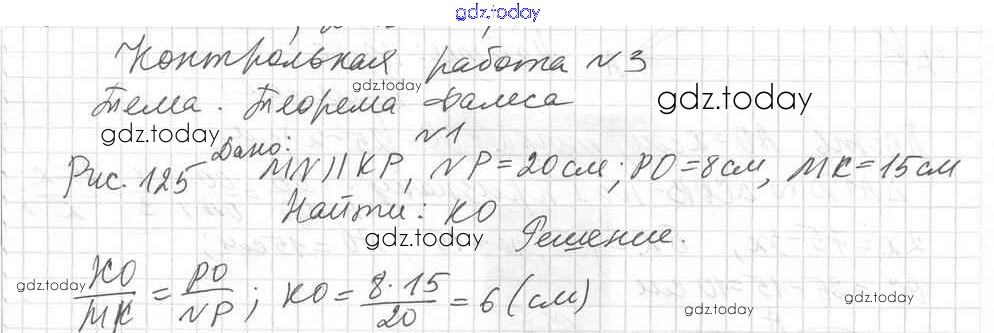 gdz.today
Контрольная работа №3
gdz.today
Тема. Теорема Фалеса
gdz.today
gdz.today
№1
Дано:
Рис. 125 MN || KP, NP = 20 см; PO = 8 см, MK = 15 см
Найти: KO
gdz.today
Решение.
KO/MK = PO/NP; KO = 8·15/20 = 6 (см)
gdz.today
gdz.today
gdz.today